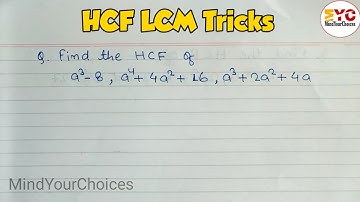 HCF LCM Tricks
MYC
MindYourChoices
Q. Find the HCF of
a³-8, a⁴+4a²+16, a³+2a²+4a
MindYourChoices